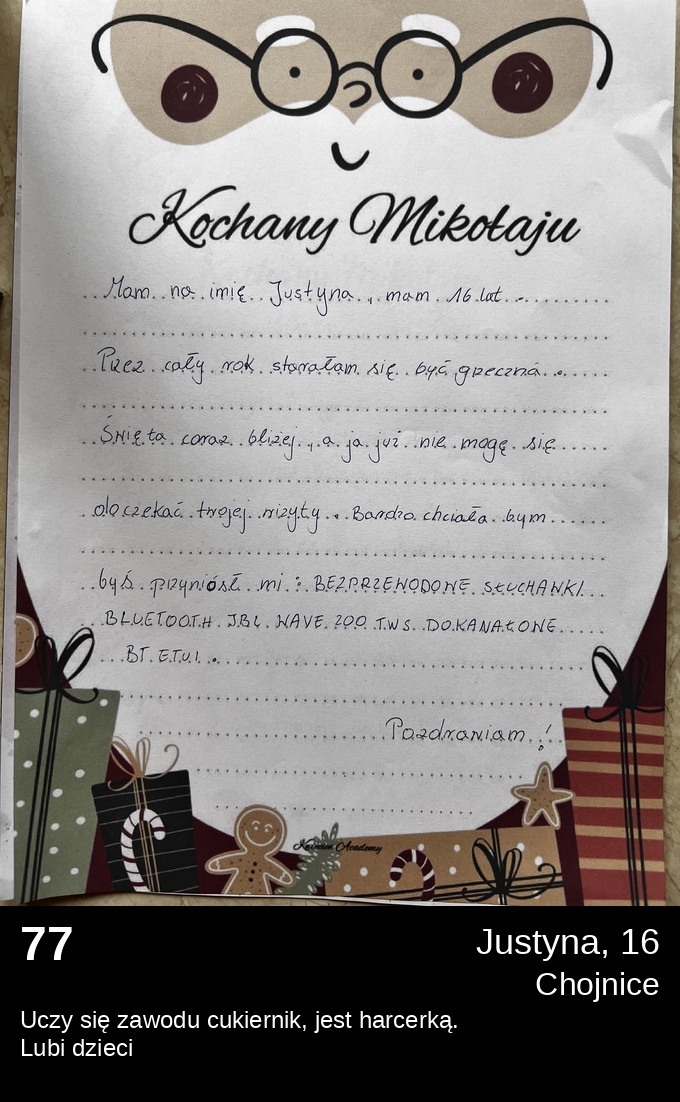 Kochany Mikołaju
Mam na imię Justyna, mam 16 lat.
Przez cały rok starałam się być grzeczna.
Święta coraz bliżej, a ja już nie mogę się
doczekać twojej wizyty. Bardzo chciała bym
byś przyniósł mi: BEZPRZEWODOWE SŁUCHAWKI
BLUETOOTH JBL WAVE 200 TWS DOKANAŁOWE
BT ETUI.
Pozdrawiam!
Academy
77
Justyna, 16
Chojnice
Uczy się zawodu cukiernik, jest harcerką.
Lubi dzieci